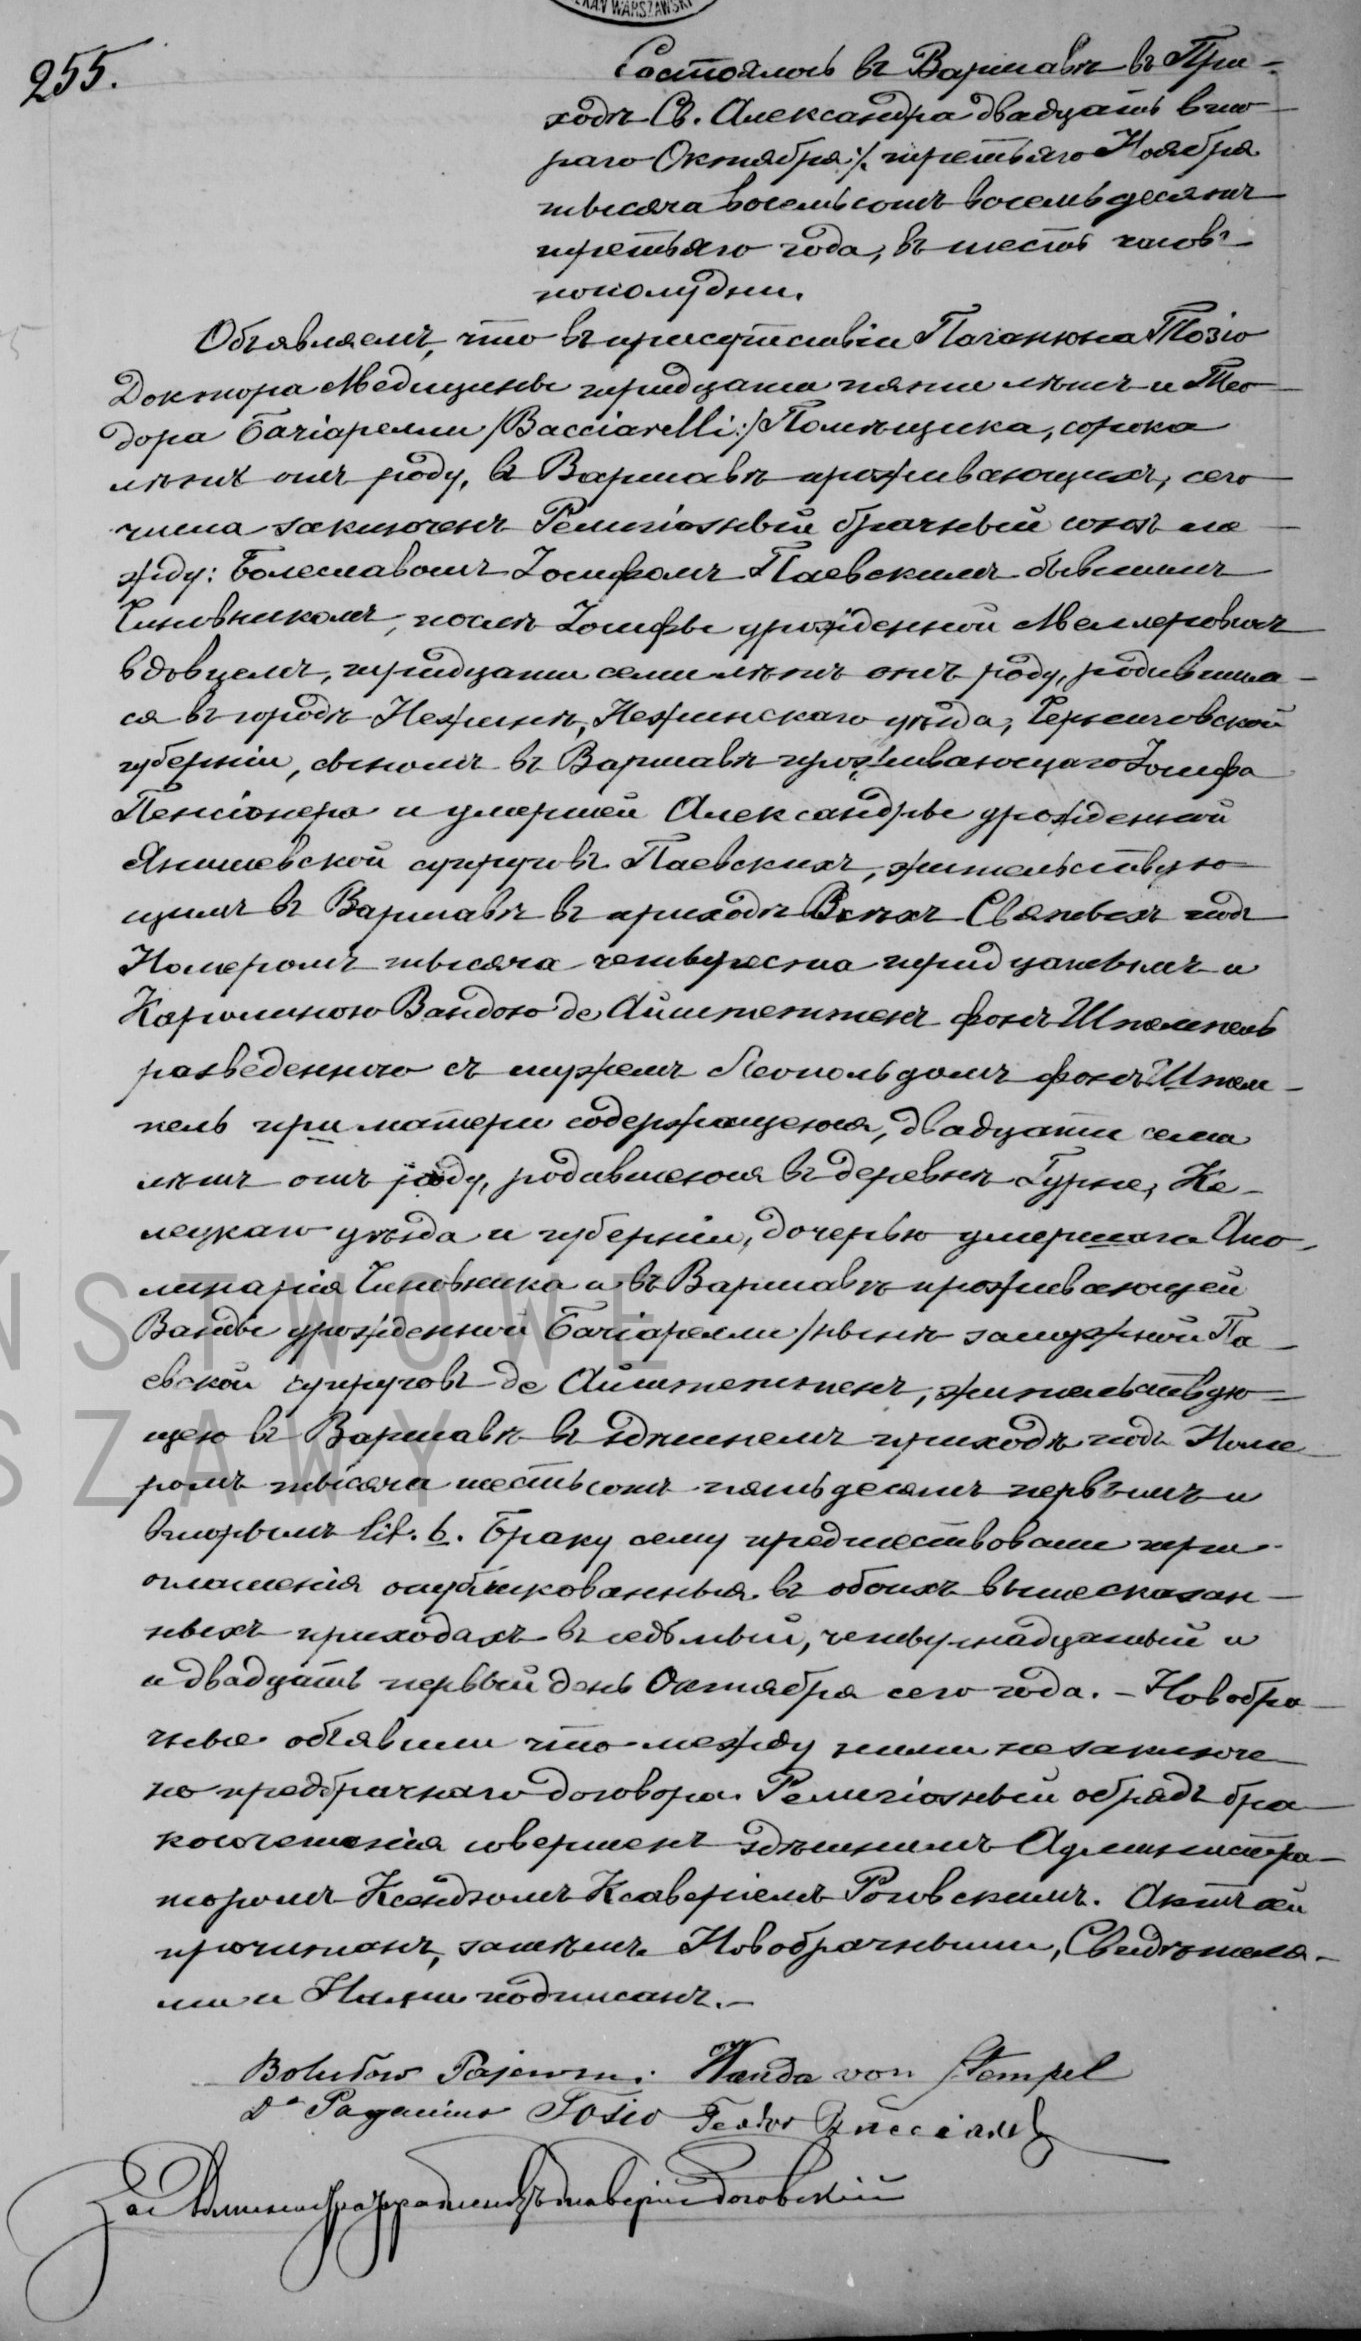 KAN WARSZAWSKI
255.
Состоялось въ Варшавѣ въ При-
ходѣ Св. Александра двадцать вто-
раго Октября /: третьяго Ноября
тысяча восемьсотъ восемьдесятъ
третьяго года, въ шесть часовъ
пополудни.
Объявляемъ, что въ присутствіи Паганюна Тозіо
Доктора Медицины тридцати пяти лѣтъ и Тео-
дора Бачіарелли /Bacciarelli:/ Помѣщика, сорока
лѣтъ отъ роду, въ Варшавѣ проживающихъ, сего
числа заключенъ Религіозный брачный союзъ ме-
жду: Болеславомъ Іосифомъ Паевскимъ бывшимъ
Чиновникомъ, послѣ Іосифы урожденной Меллеровичъ
вдовцемъ, тридцати семи лѣтъ отъ роду, родившим-
ся въ городѣ Нежинѣ, Нежинскаго уѣзда, Черниговской
губерніи, сыномъ въ Варшавѣ проживающаго Іосифа
Пенсіонера и умершей Александры урожденной
Янишевской супруговъ Паевскихъ, жительствую-
щимъ въ Варшавѣ въ приходѣ Всѣхъ Святыхъ подъ
Номеромъ тысяча четыреста тридцатымъ и
Каролиною Вандою де Айштеттенъ фонъ Штемпель
разведенною съ мужемъ Леопольдомъ фонъ Штем-
пель при матери содержащеюся, двадцати семи
лѣтъ отъ роду, родившеюся въ деревнѣ Гурне, Ке-
лецкаго уѣзда и губерніи, дочерью умершаго Апо-
линарія Чиновника и въ Варшавѣ проживающей
Ванды урожденной Бачіарелли /нынѣ замужной Па-
евской супруговъ де Айштеттенъ, жительствую-
щею въ Варшавѣ въ здѣшнемъ приходѣ подъ Номе-
ромъ тысяча шестьсотъ пятьдесятъ первымъ и
вторымъ lit. b. Браку сему предшествовали три
оглашенія опубликованныя въ обоихъ вышесказан-
ныхъ приходахъ въ седьмый, четырнадцатый и
и двадцать первый день Октября сего года. – Новобра-
чные объявили что между ними не заключе-
но предбрачнаго договора. Религіозный обрядъ бра-
косочетанія совершенъ здѣшнимъ Администра-
торомъ Ксендзомъ Ксаверіемъ Роговскимъ. Актъ сей
прочитанъ, затѣмъ Новобрачными, Свидѣтеля-
ми и Нами подписанъ. –
Bolesław Pajewski. Wanda von Stempel
Dr Paganino Tosio Teodor Bacciarelli
ŃSTWOWE
SZAWY